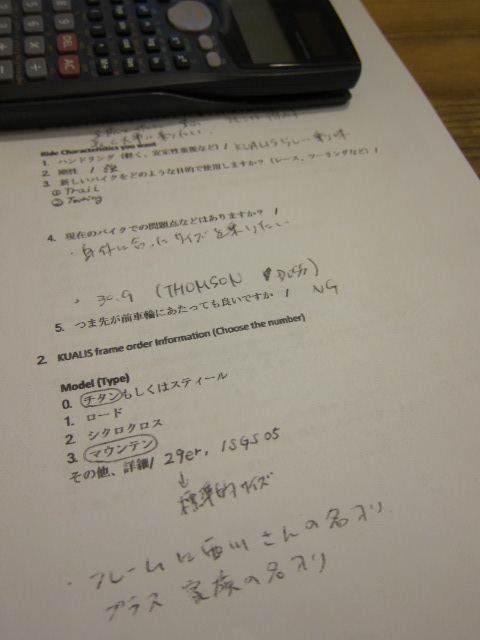 Ride Characteristics you want
1. ハンドリング (軽く、安定性重視など) / KUALISらしい乗り味
2. 剛性 / 強
3. 新しいバイクをどのような目的で使用しますか? (レース、ツーリングなど) /
① Trail
② Touring
4. 現在のバイクでの問題点などはありますか? /
・身体に合ったサイズを乗りたい
・30.9 (THOMSON
5. つま先が前車輪にあたっても良いですか / NG
2. KUALIS frame order Information (Choose the number)
Model (Type)
0. チタンもしくはスティール
1. ロード
2. シクロクロス
3. マウンテン
その他、詳細/ 29er, ISGS05
↓
標準的サイズ
・フレームに西川さんの名入リ
プラス 家族の名入リ